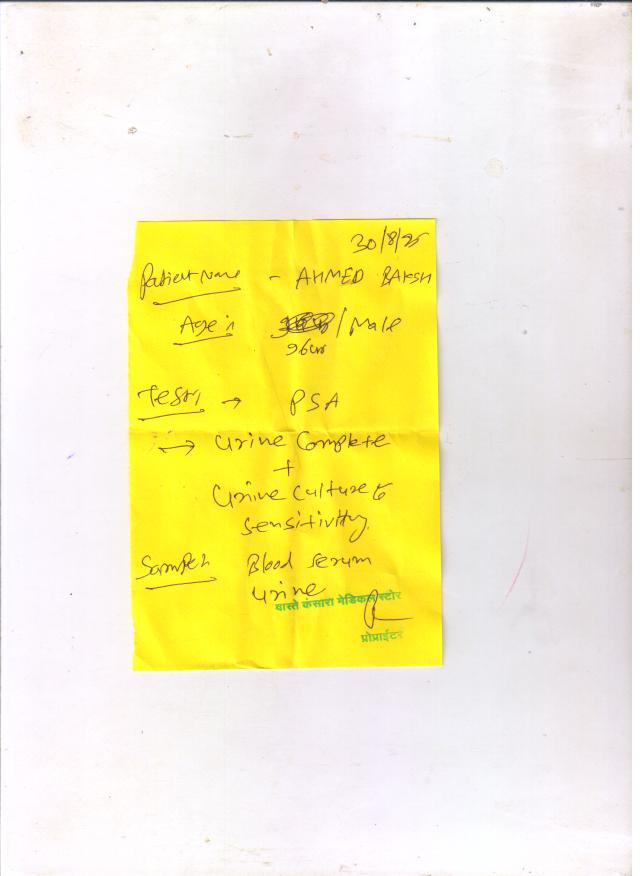 30/8/25
Patient Name - AHMED BAKSH
Age : / Male
96 yr
Tests → PSA
→ Urine Complete
+
Urine Culture &
Sensitivity
Samples Blood Serum
Urine
वास्ते कंसारा मेडिकल स्टोर
प्रोप्राईटर